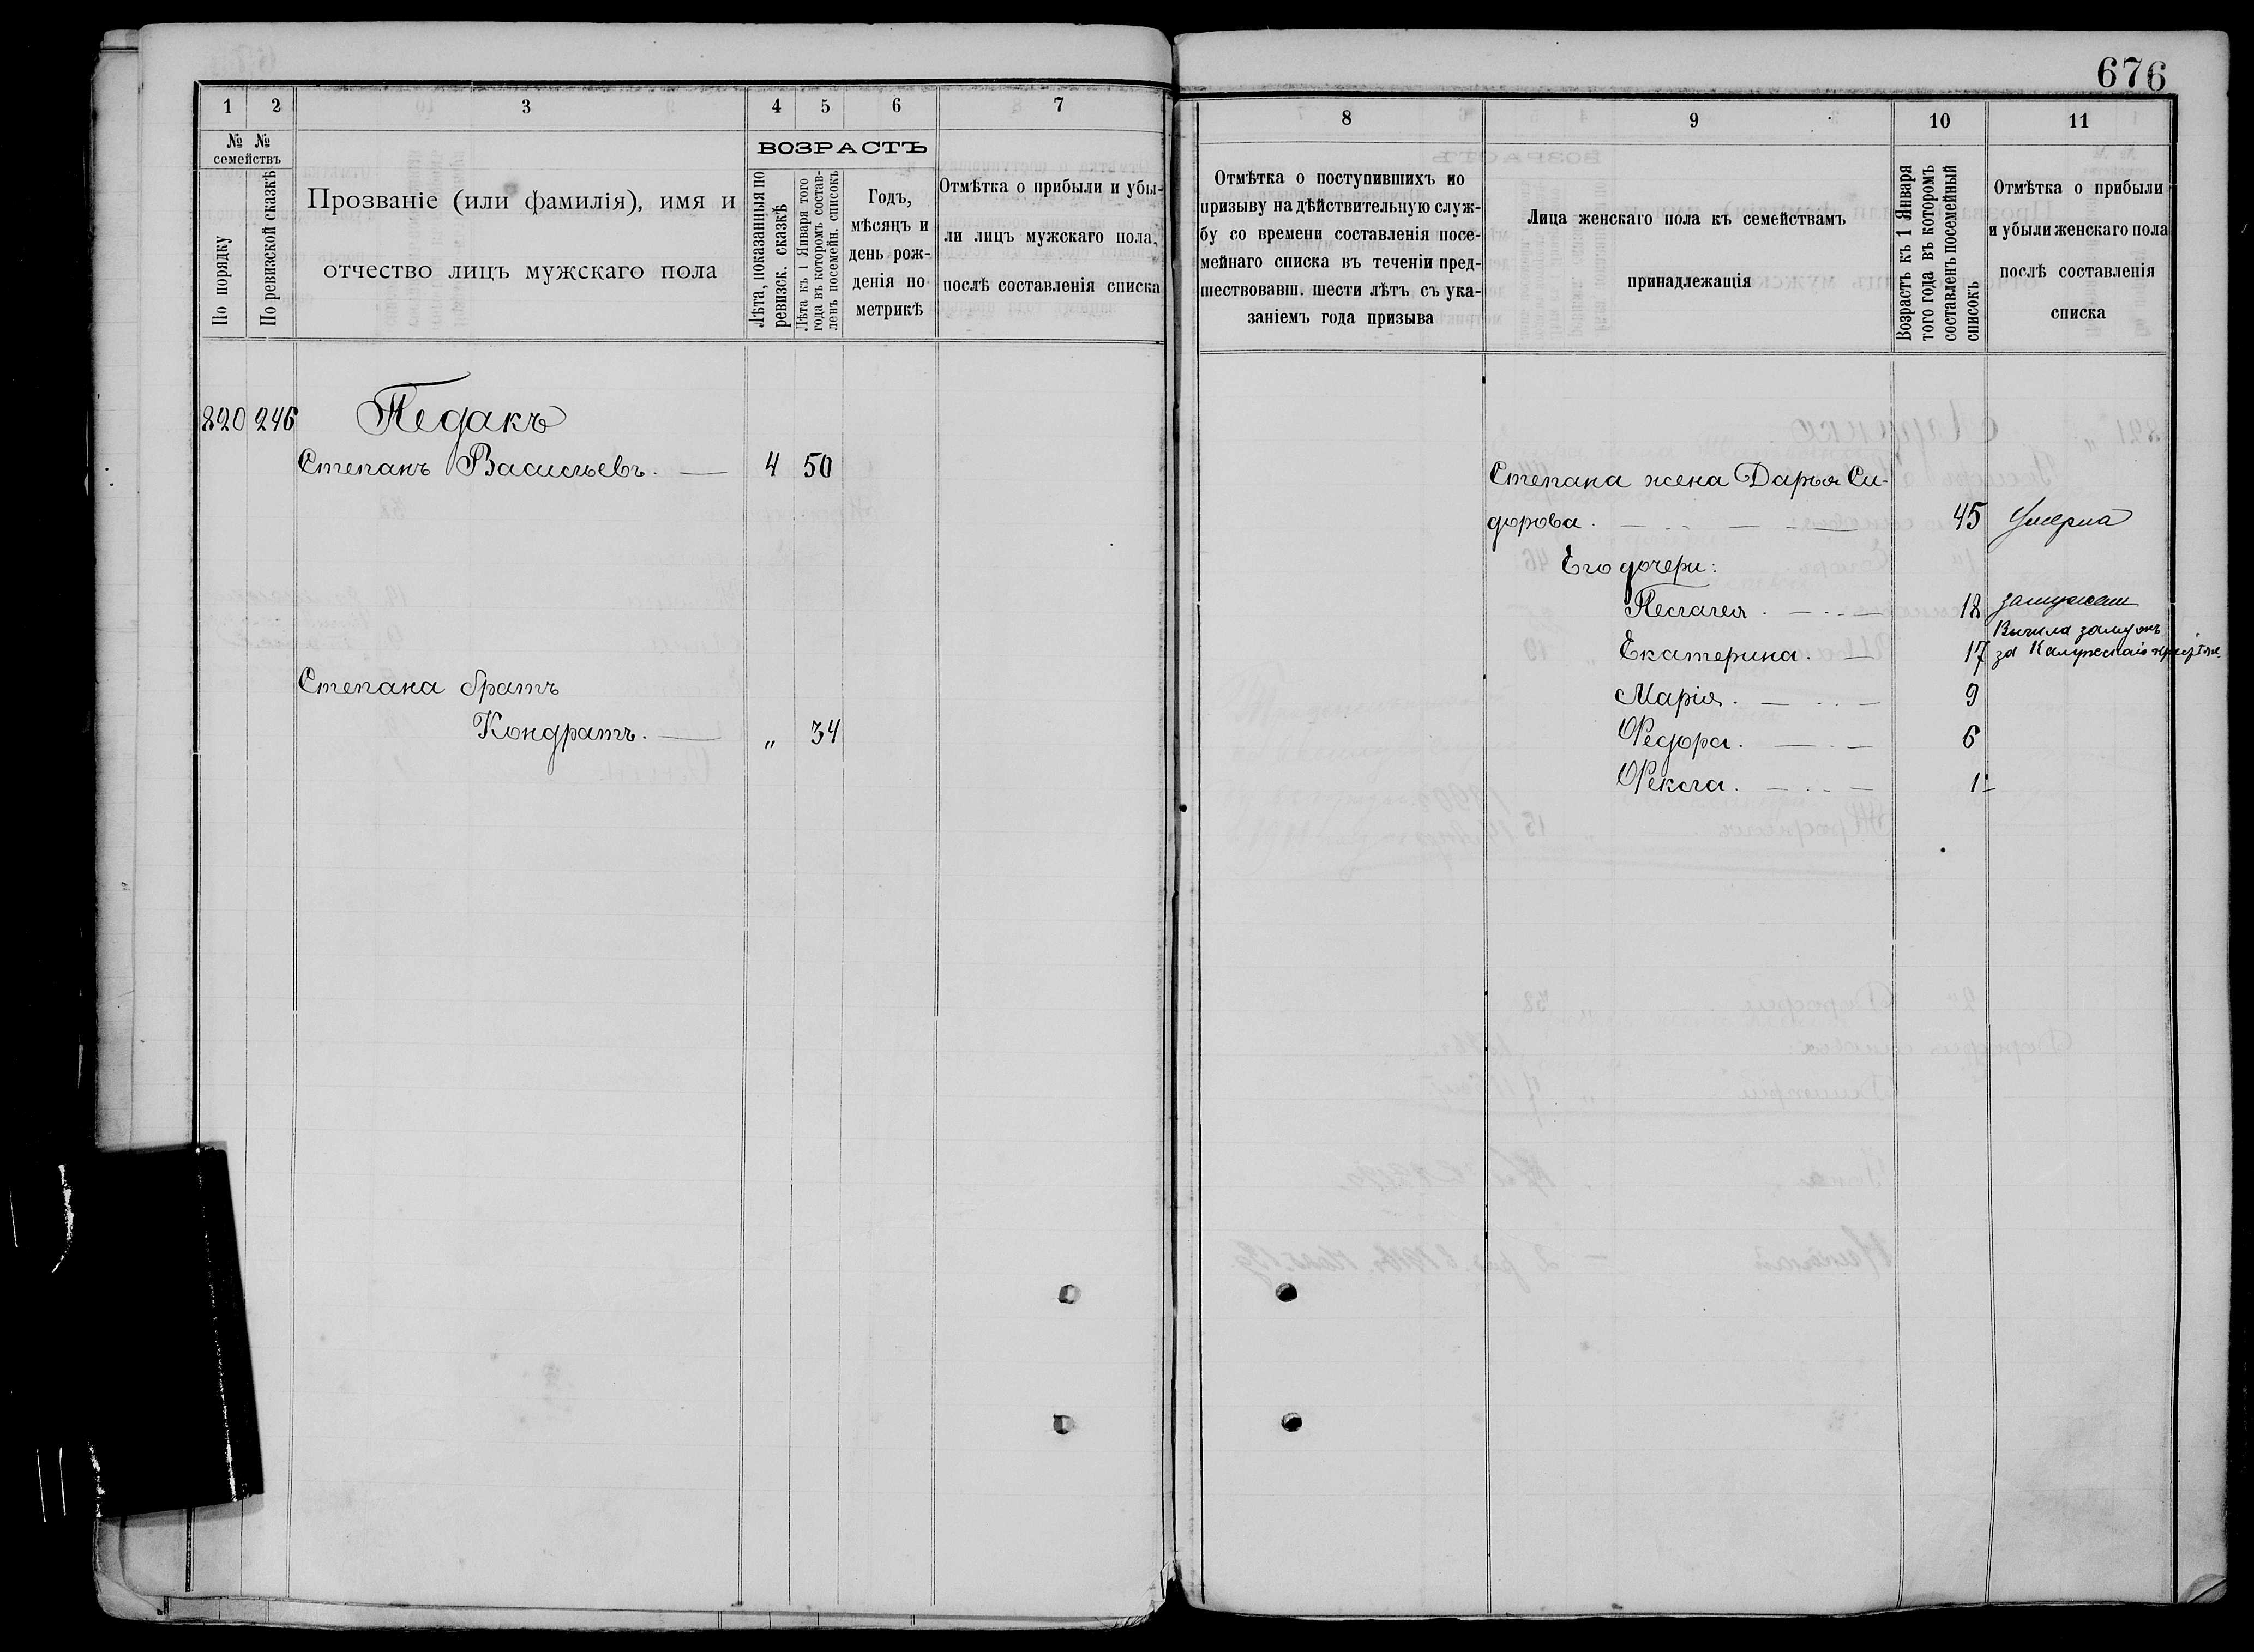 676
1 2 3 4 5 6 7
№ №
семействъ
По порядку
По ревизской сказкѣ
Прозваніе (или фамилія), имя и
отчество лицъ мужскаго пола
ВОЗРАСТЪ
Лѣта, показанныя по
ревизск. сказкѣ
Лѣта къ 1 Января того
года въ которомъ состав-
ленъ посемейн. списокъ
Годъ,
мѣсяцъ и
день рож-
денія по
метрикѣ
Отмѣтка о прибыли и убы-
ли лицъ мужскаго пола,
послѣ составленія списка
820 246 Педакъ
Степанъ Васильевъ. — 4 50
Степана братъ
Кондратъ. — „ 34
8 9 10 11
Отмѣтка о поступившихъ по
призыву на дѣйствительную служ-
бу со времени составленія посе-
мейнаго списка въ теченіи пред-
шествовавш. шести лѣтъ съ ука-
заніемъ года призыва
Лица женскаго пола къ семействамъ
принадлежащія
Возрастъ къ 1 Января
того года въ которомъ
составленъ посемейный
списокъ
Отмѣтка о прибыли
и убыли женскаго пола
послѣ составленія
списка
Степана жена Дарья Си-
дорова. — 45 Умерла
Его дочери:
Пелагея. — 18 замужемъ
Екатерина. — 17 Вышла замужъ
за Калужскаго
Марія. — 9
Ѳедора. — 6
Ѳекла. — 1